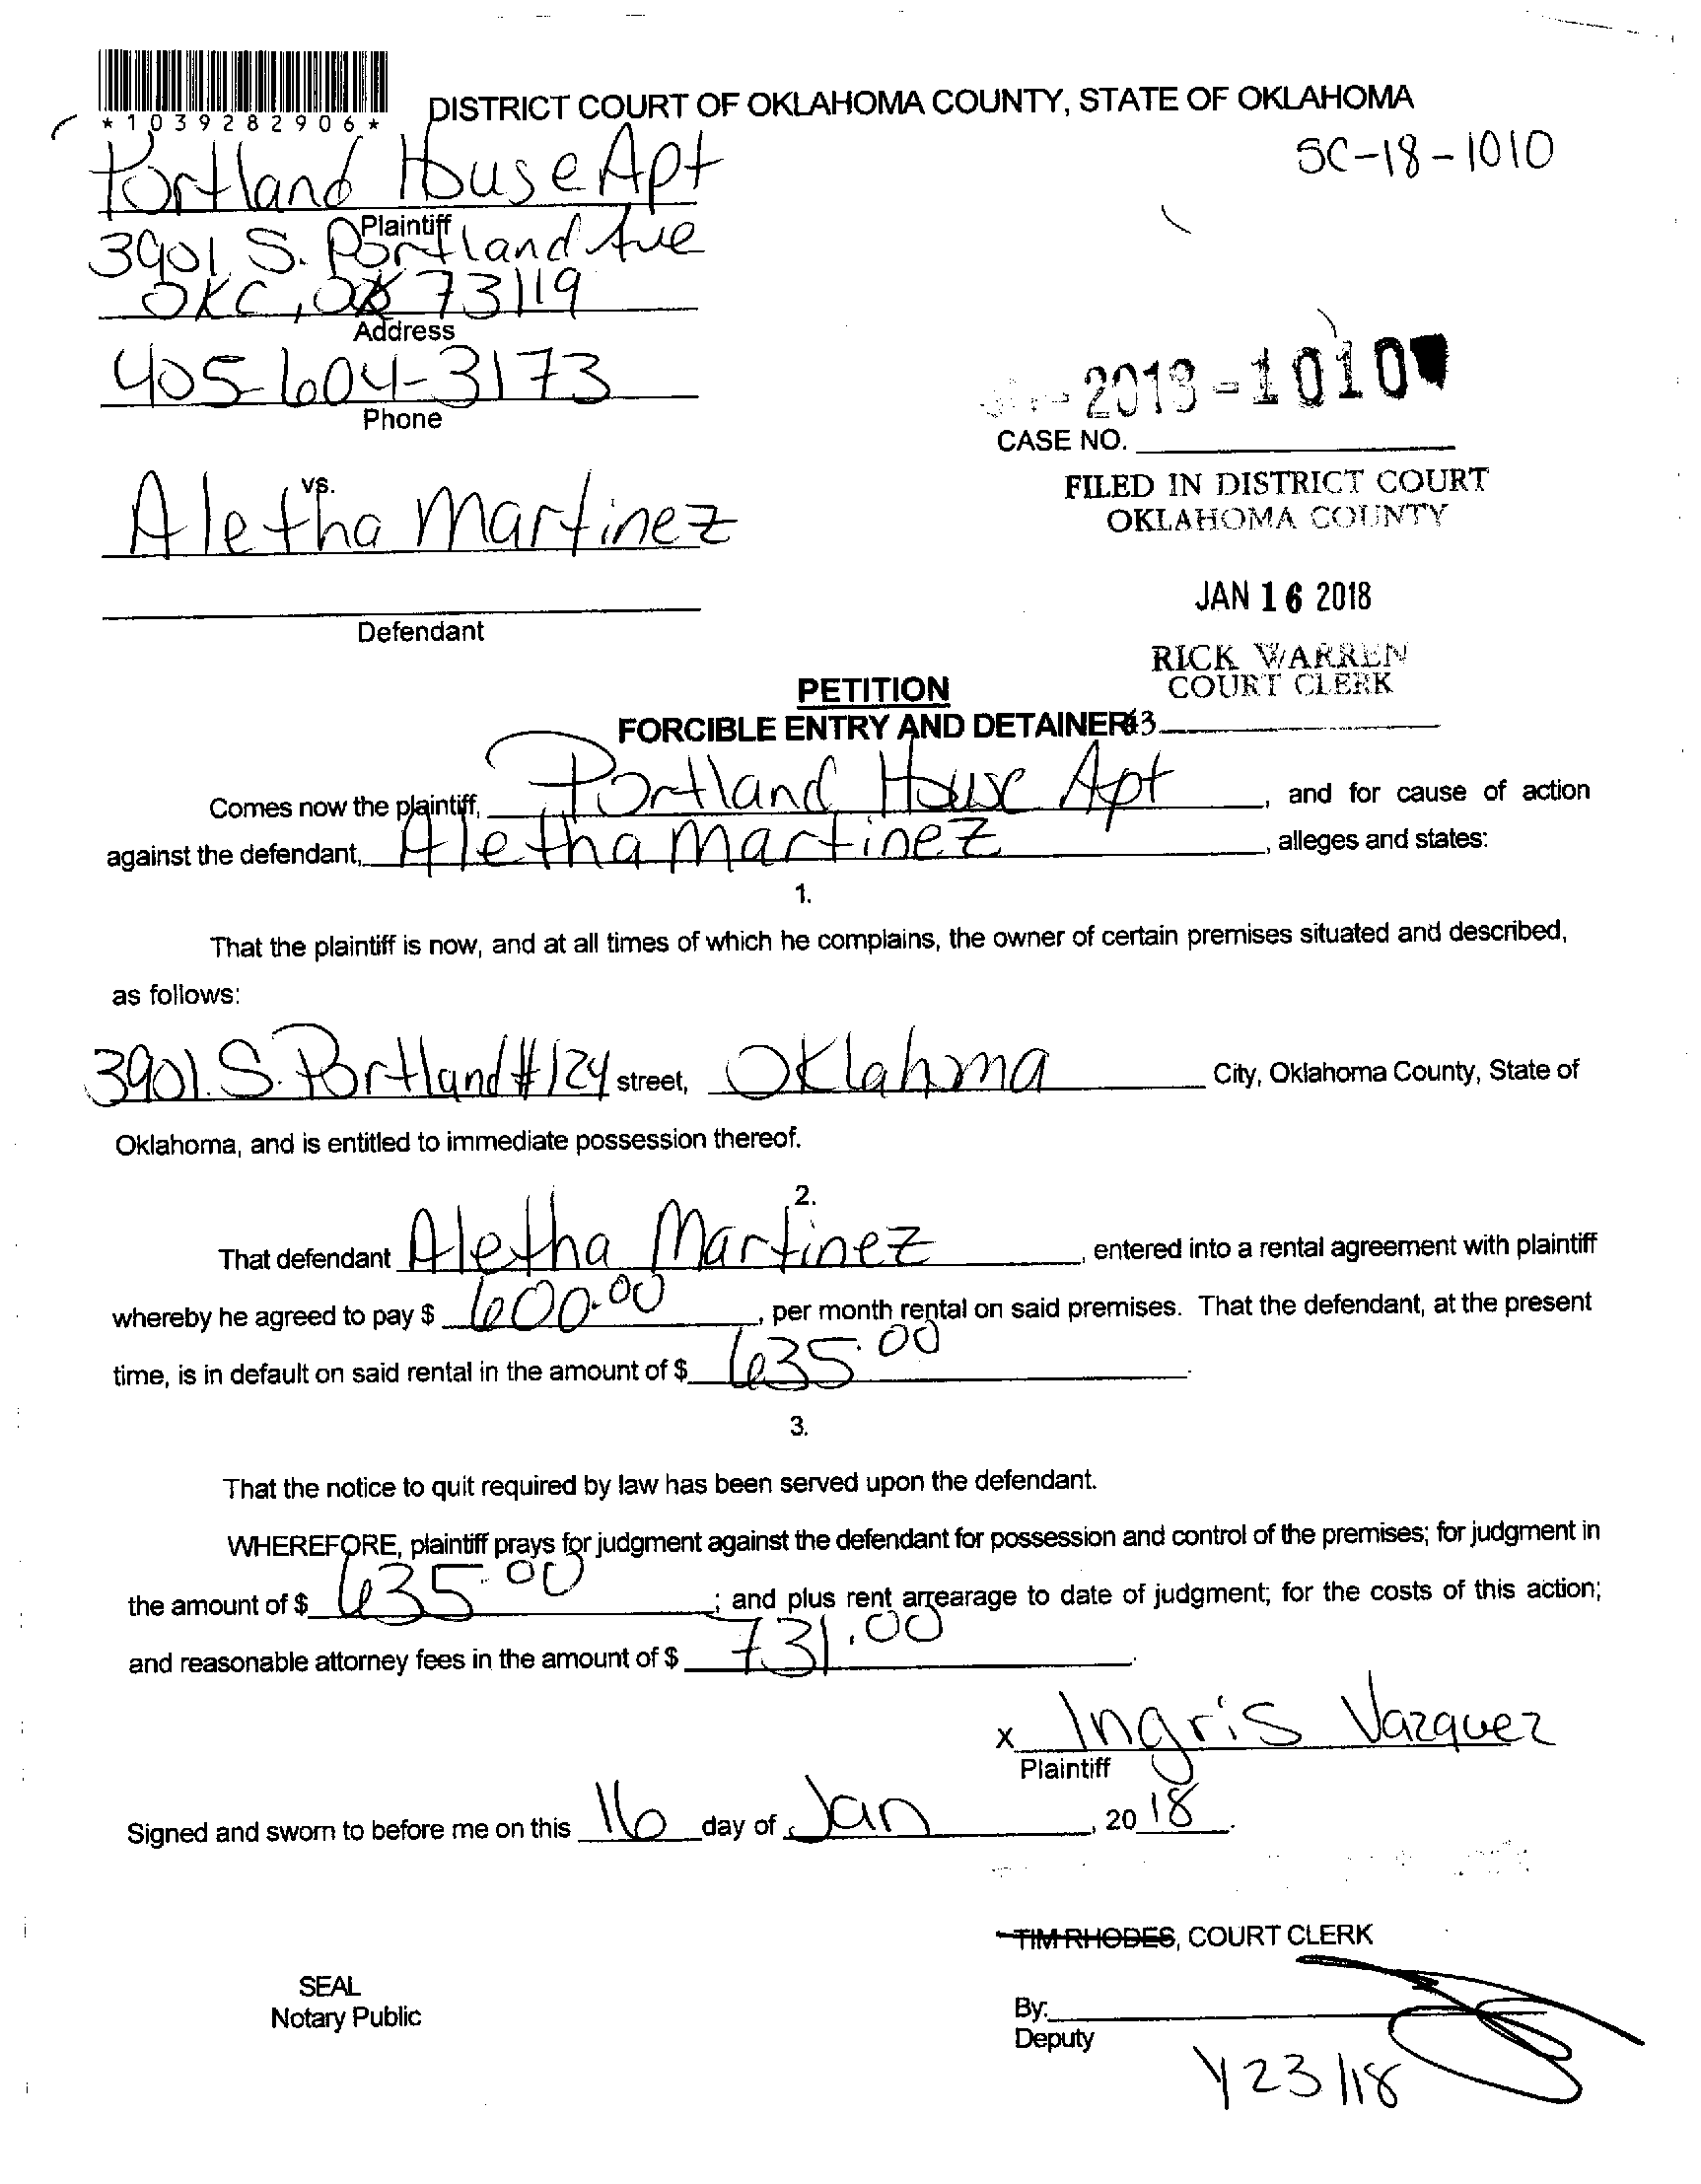 *1039282906*
DISTRICT COURT OF OKLAHOMA COUNTY, STATE OF OKLAHOMA
SC-18-1010
Portland House Apt
Plaintiff
3901 S. Portland Ave
OKC, OK 73119
Address
405-604-3173
Phone
-2018-1010
CASE NO.
vs.
Aletha Martinez
FILED IN DISTRICT COURT
OKLAHOMA COUNTY
JAN 16 2018
Defendant
RICK WARREN
COURT CLERK
PETITION
FORCIBLE ENTRY AND DETAINER
43
Comes now the plaintiff, Portland House Apt, and for cause of action
against the defendant, Aletha Martinez, alleges and states:
1.
That the plaintiff is now, and at all times of which he complains, the owner of certain premises situated and described,
as follows:
3901. S. Portland #124 street, Oklahma City, Oklahoma County, State of
Oklahoma, and is entitled to immediate possession thereof.
2.
That defendant Aletha Martinez, entered into a rental agreement with plaintiff
whereby he agreed to pay $ 600.00, per month rental on said premises. That the defendant, at the present
time, is in default on said rental in the amount of $ 635.00.
3.
That the notice to quit required by law has been served upon the defendant.
WHEREFORE, plaintiff prays for judgment against the defendant for possession and control of the premises; for judgment in
the amount of $ 635.00; and plus rent arrearage to date of judgment; for the costs of this action;
and reasonable attorney fees in the amount of $ 731.00.
x Ingris Vazquez
Plaintiff
Signed and sworn to before me on this 16 day of Jan, 20 18.
TIM RHODES, COURT CLERK
SEAL
Notary Public
By:
Deputy
1/23/18